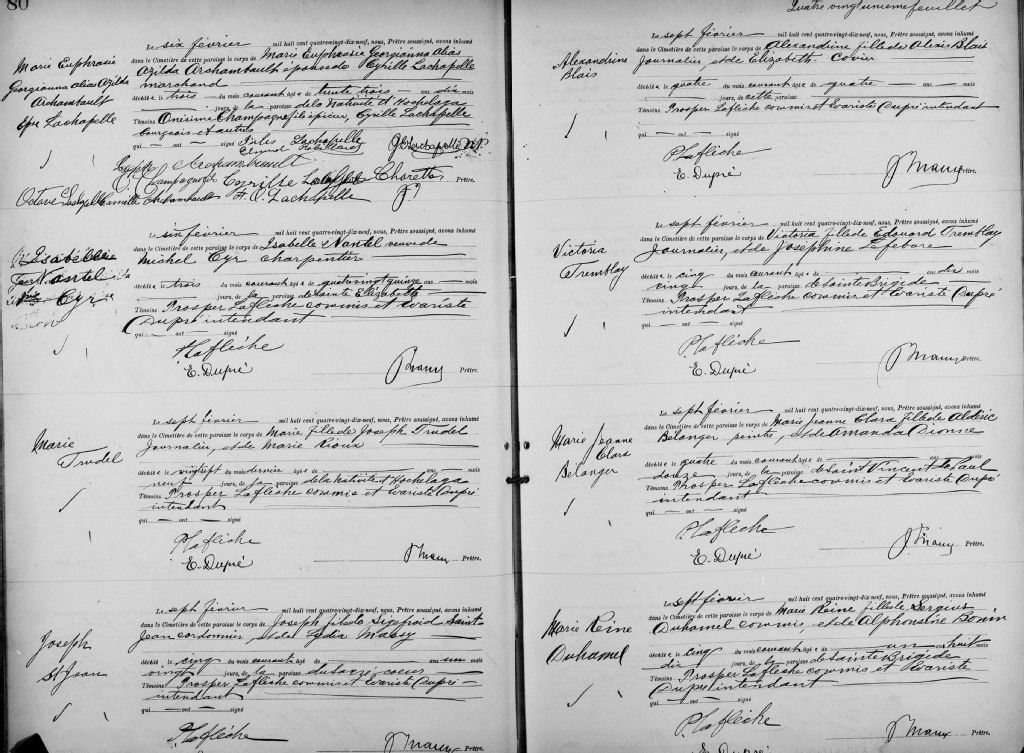 80
Marie Euphrasie
Georgianna alias Azilda
Archambault
Epse Lachapelle
Le six février mil huit cent quatre-vingt-dix-neuf, nous, Prêtre soussigné, avons inhumé
dans le Cimetière de cette paroisse le corps de Marie Euphrasie Georgianna Alias
Azilda Archambault épouse de Cyrille Lachapelle
marchand
décédée le trois du mois courant agée de trente trois ans dix mois
jours, de la paroisse de la Nativité d'Hochelaga
Témoins Onésime Champagne fils épicier, Cyrille Lachapelle
bourgeois et autres
qui ont signé Jules Lachapelle
Cyrille Lachapelle
Octave Camille Archambault F. O. Lachapelle
Prêtre.
Isabelle
Nantel
Cyr
Le six février mil huit cent quatre-vingt-dix-neuf, nous, Prêtre soussigné, avons inhumé
dans le Cimetière de cette paroisse le corps de Isabelle Nantel veuve de
Michel Cyr charpentier
décédée le trois du mois courant agée de quatrevingt quinze ans mois
jours, de la paroisse de Sainte Elizabeth
Témoins Prosper Laflèche commis et Evariste
Dupré intendant
qui ont signé
P. Laflèche
E. Dupré
Prêtre.
Marie
Trudel
Le sept février mil huit cent quatre-vingt-dix-neuf, nous, Prêtre soussigné, avons inhumé
dans le Cimetière de cette paroisse le corps de Marie fille de Joseph Trudel
Journalier, et de Marie Rioux
décédée le vingt sept du mois dernier agée de ans mois
neuf jours, de la paroisse de la Nativité d'Hochelaga
Témoins Prosper Laflèche commis et Evariste Dupré
intendant
qui ont signé
P. Laflèche
E. Dupré
Prêtre.
Joseph
St Jean
Le sept février mil huit cent quatre-vingt-dix-neuf, nous, Prêtre soussigné, avons inhumé
dans le Cimetière de cette paroisse le corps de Joseph fils de Sigefroid Saint
Jean cordonnier, et de Lydia Massy
décédé le cinq du mois courant agé de ans un mois
vingt jours, de la paroisse du Sacré coeur
Témoins Prosper Laflèche commis et Evariste Dupré
intendant
qui ont signé
P. Laflèche
E. Dupré
Quatre vingt unieme feuillet
Alexandrine
Blais
Le sept février mil huit cent quatre-vingt-dix-neuf, nous, Prêtre soussigné, avons inhumé
dans le Cimetière de cette paroisse le corps de Alexandrine fille de Alexis Blais
Journalier et de Elizabeth
décédée le quatre du mois courant agée de quatre ans mois
jours, de cette paroisse
Témoins Prosper Laflèche commis et Evariste Dupré intendant
qui ont signé
P. Laflèche
E. Dupré
Prêtre.
Victoria
Tremblay
Le sept février mil huit cent quatre-vingt-dix-neuf, nous, Prêtre soussigné, avons inhumé
dans le Cimetière de cette paroisse le corps de Victoria fille de Edouard Tremblay
Journalier, et de Josephine Lefebvre
décédée le cinq du mois courant agée de ans dix mois
cinq jours, de la paroisse de Sainte Brigide
Témoins Prosper Laflèche commis et Evariste Dupré
intendant
qui ont signé
P. Laflèche
E. Dupré
Prêtre.
Marie Jeanne
Clara
Bélanger
Le sept février mil huit cent quatre-vingt-dix-neuf, nous, Prêtre soussigné, avons inhumé
dans le Cimetière de cette paroisse le corps de Marie Jeanne Clara fille de Aldéric
Bélanger peintre, et de Amanda Dionne
décédée le quatre du mois courant agée de ans mois
douze jours, de la paroisse de Saint Vincent de Paul
Témoins Prosper Laflèche commis et Evariste Dupré
intendant
qui ont signé
P. Laflèche
E. Dupré
Prêtre.
Marie Reine
Duhamel
Le sept février mil huit cent quatre-vingt-dix-neuf, nous, Prêtre soussigné, avons inhumé
dans le Cimetière de cette paroisse le corps de Marie Reine fille de Sergius
Duhamel commis, et de Alphonsine Bonin
décédée le cinq du mois courant agée de un ans huit mois
dix jours, de la paroisse de Sainte Brigide
Témoins Prosper Laflèche commis et Evariste
Dupré intendant
qui ont signé
P. Laflèche
E. Dupré
Prêtre.